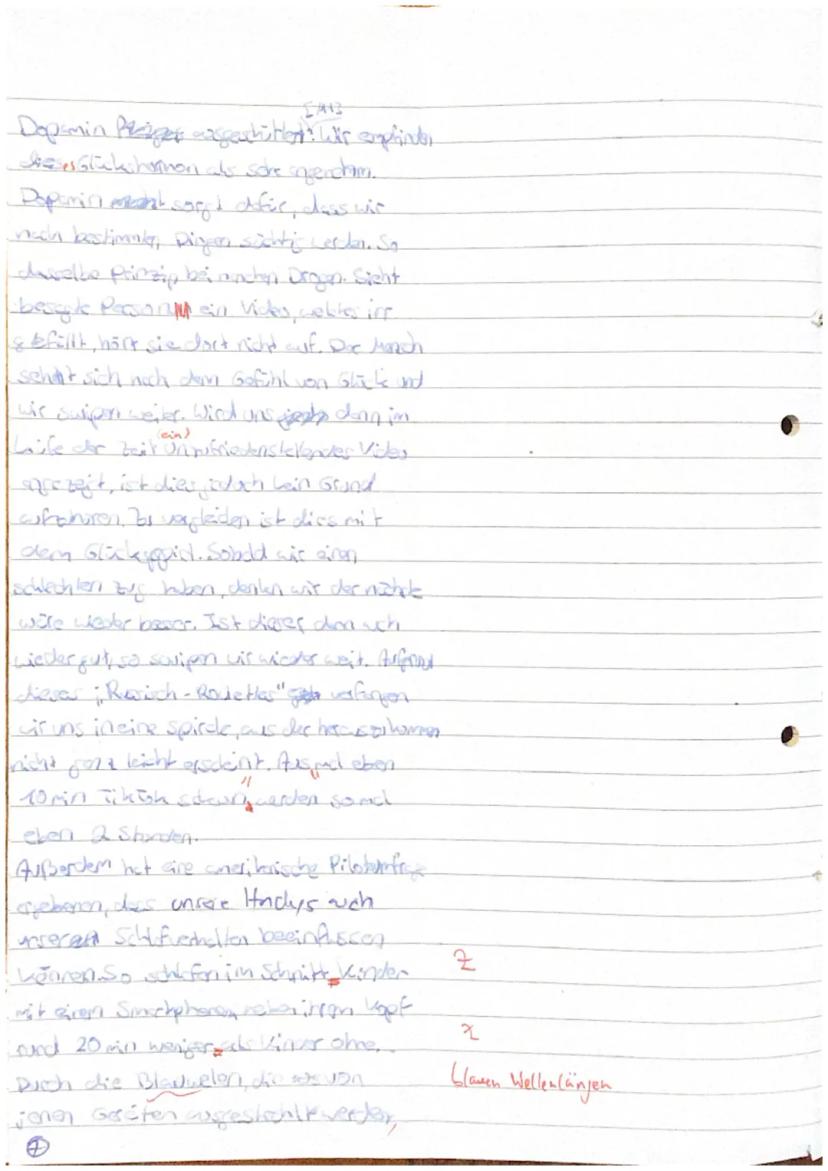 [M3
Dopamin ausgeschüttet. Wir empfinden
dieses Glückshormon als sehr angenehm.
Dopamin sorgt dafür, dass wir
nach bestimmten Dingen süchtig werden. So
dasselbe Prinzip bei manchen Drogen. Sieht
besagte Person ein Video, welches irr
gefällt, hört sie dort nicht auf. Der Mensch
sehnt sich nach dem Gefühl von Glück und
wir swipen weiter. Wird uns dann im
(ein)
Laufe der Zeit Unzufriedenstellendes Video
angezeigt, ist dies jedoch kein Grund
aufzuhören. Zu vergleichen ist dies mit
dem Glücksspiel. Sobald wir einen
schlechten Zug haben, denken wir der nächste
wäre wieder besser. Ist dieser dann auch
wieder gut, so swipen wir wieder weit. Aufgrund
dieses verfangen
wir uns in eine Spirale, aus der herauszukommen
nicht ganz leicht erscheint. Aus mal eben
10 min TikTok schauen, werden so mal
eben 2 Stunden.
Außerdem hat eine amerikanische Pilotumfrage
ergeben, dass unsere Handys auch
unser Schlafverhalten beeinflussen
können. So schlafen im Schnitt Kinder Z
mit einem Smartphone neben ihrem Kopf
rund 20 min weniger als Kinder ohne. Z
Durch die Blauwelen, die von blauen Wellenlängen
jenen Geräten ausgestrahlt werden,